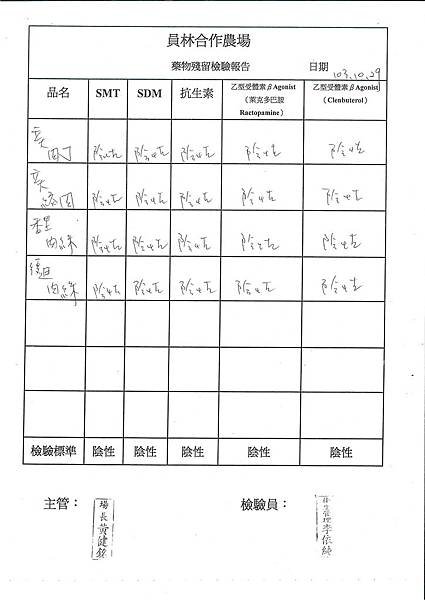 員林合作農場
藥物殘留檢驗報告 日期 103.10.29
品名 SMT SDM 抗生素 乙型受體素βAgonist (萊克多巴胺 Ractopamine) 乙型受體素βAgonist (Clenbuterol)
肉丁 陰性 陰性 陰性 陰性 陰性
陰性 陰性 陰性 陰性 陰性
肉絲 陰性 陰性 陰性 陰性 陰性
肉絲 陰性 陰性 陰性 陰性 陰性
檢驗標準 陰性 陰性 陰性 陰性 陰性
主管： 場長黃健銘 檢驗員： 衛生管理李依純